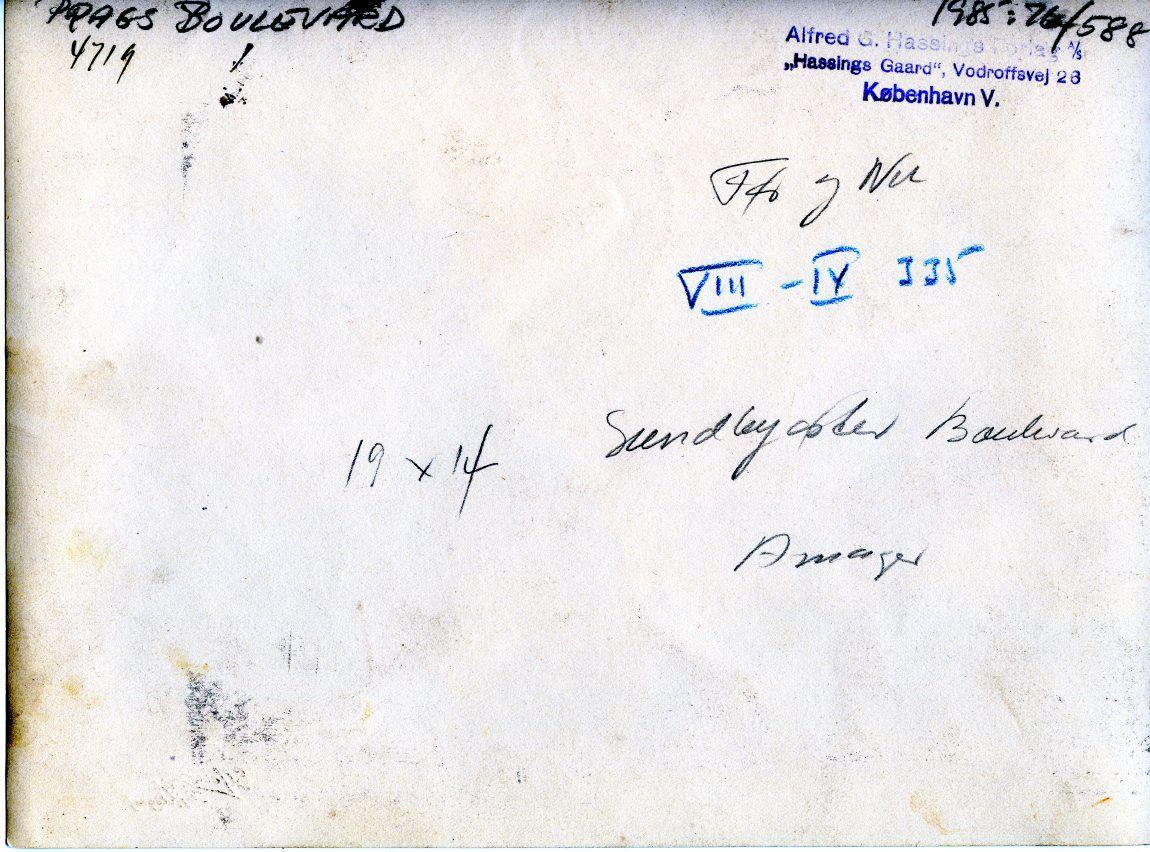 PRAGS BOULEVARD
4719
1985:76/588
Alfred G. Hassings Forlag A/s
„Hassings Gaard“, Vodroffsvej 26
København V.
Før og Nu
VIII - IV 335
Sundbyøster Boulevard
19 x 14
Amager